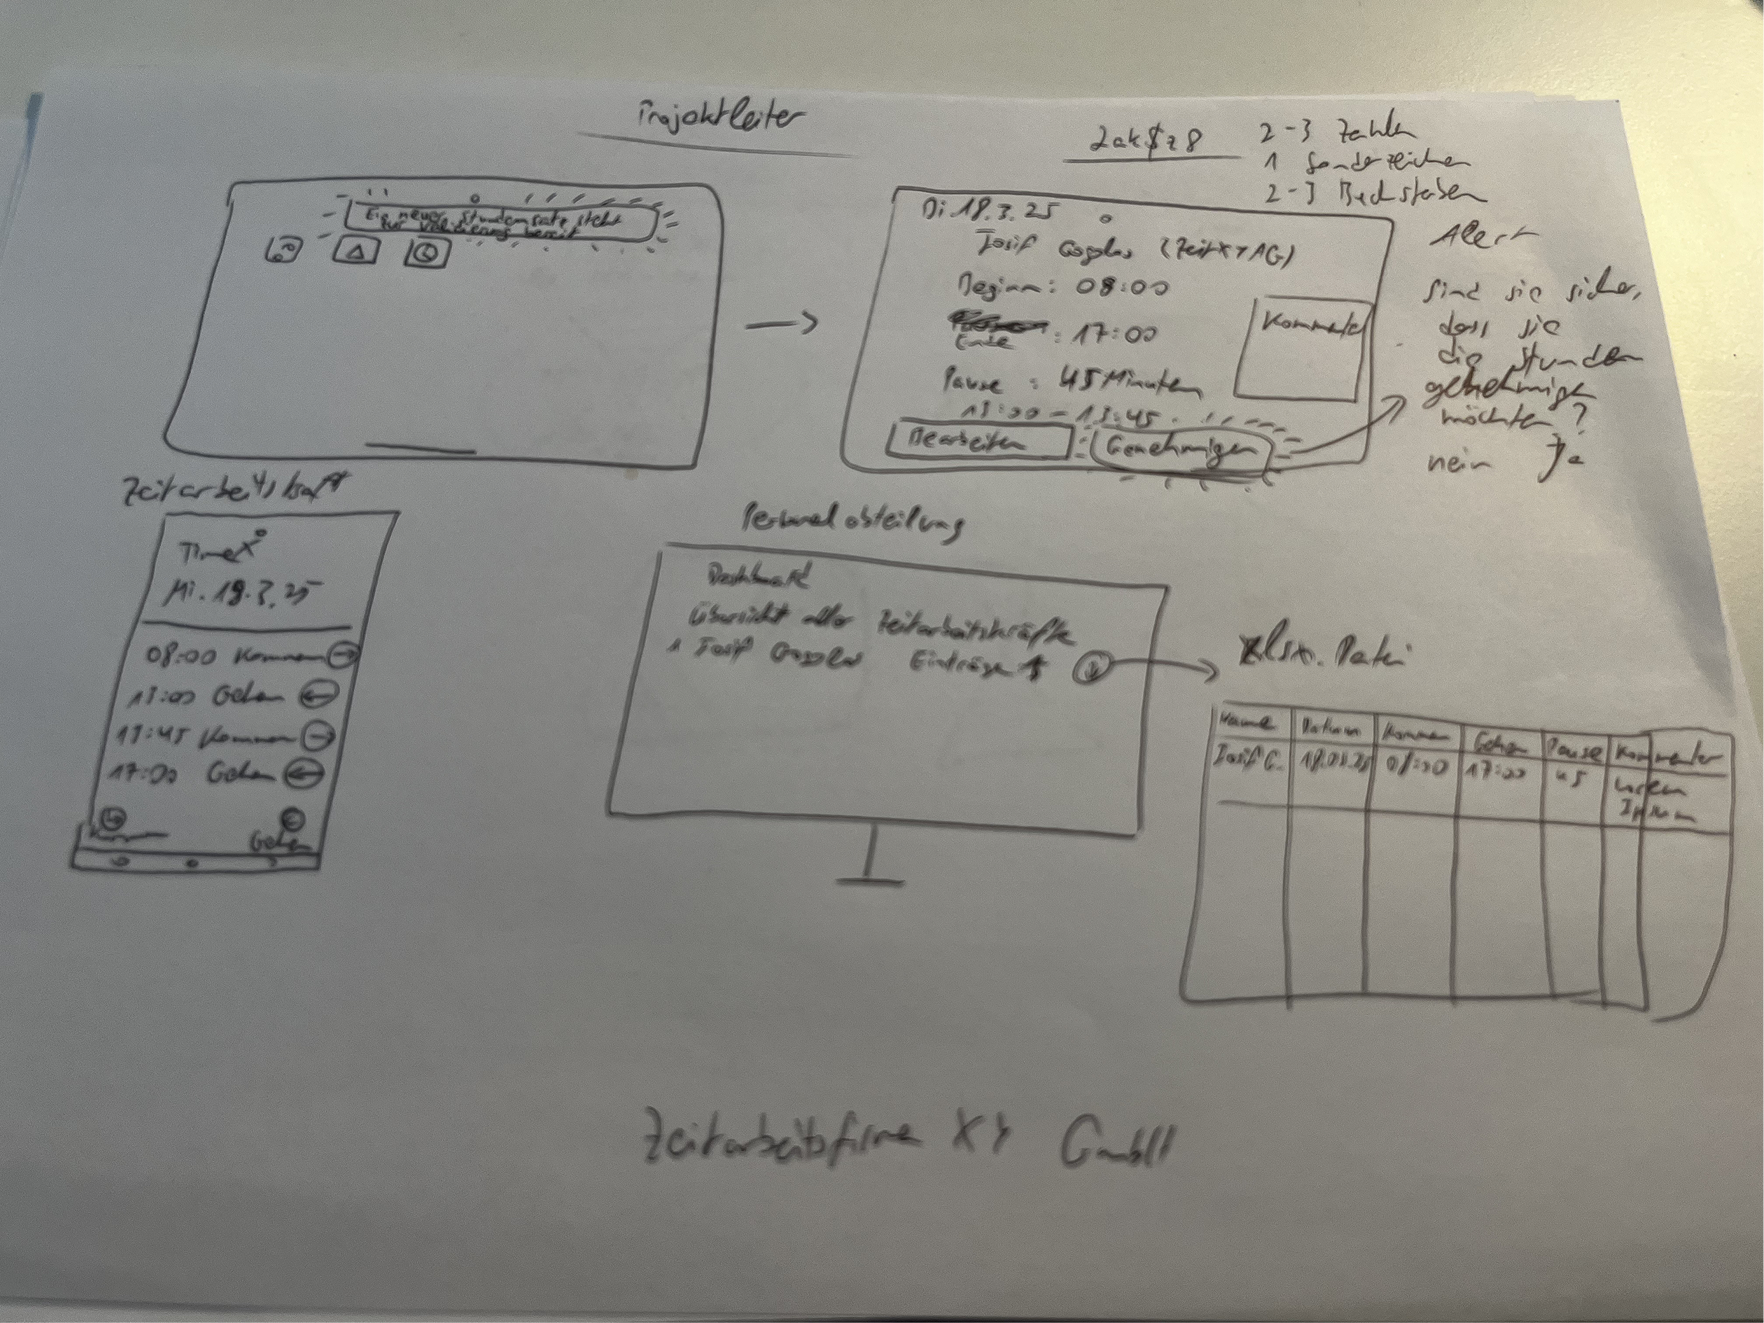 Projektleiter
2ak$z8
2-3 Zahlen
1 Sonderzeichen
2-3 Buchstaben
Ein neuer Stundensatz steht
zur Validierung bereit
Di. 18.3.25
Josif (ZeitXYAG)
Beginn: 08:00
Ende : 17:00
Pause : 45 Minuten
13:00 - 13:45
Kommentar
Bearbeiten
Genehmigen
Alert
Sind sie sicher,
dass sie
die Stunden
genehmigen
möchten?
nein Ja
Zeitarbeitskraft
TimeX
Mi. 19.3.25
08:00 Kommen
13:00 Gehen
13:45 Kommen
17:00 Gehen
Gehen
Personalabteilung
Dashboard
Übersicht aller Zeitarbeitskräfte
1 Josif Einträge
xlsx. Datei
Name Datum Kommen Gehen Pause Kommentar
Josif G. 18.03.25 08:00 17:00 45 Lorem
Ipsum
Zeitarbeitsfirma XY GmbH